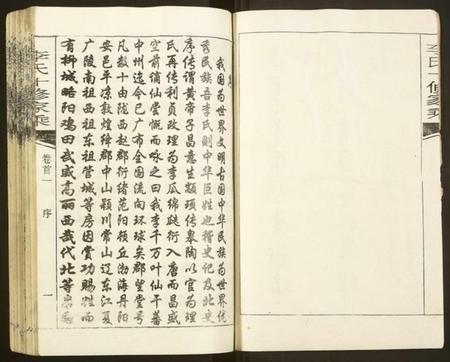 序
我国为世界文明古国中华民族为世界优
秀民族吾李氏则中华巨姓也稽史记及北史
序传谓黄帝子昌意生颛顼传皋陶以官为理
氏再传利贞改理为李瓜绵瓞衍入唐而昌盛
空前谪仙尝慨而咏之曰我李千万叶仙干蕃
中州迄今已广布全国流向环球矣郡望堂号
凡数十由陇西赵郡衍绪范阳顿丘渤海丹阳
安邑平凉敦煌绛郡中山颍川常山辽东江夏
广陵南祖西祖东祖管城等房因赏功赐姓而
有柳城略阳鸡田武威高丽西戎代北等
李氏十修家乘
卷首一
序
一
李氏十修家乘